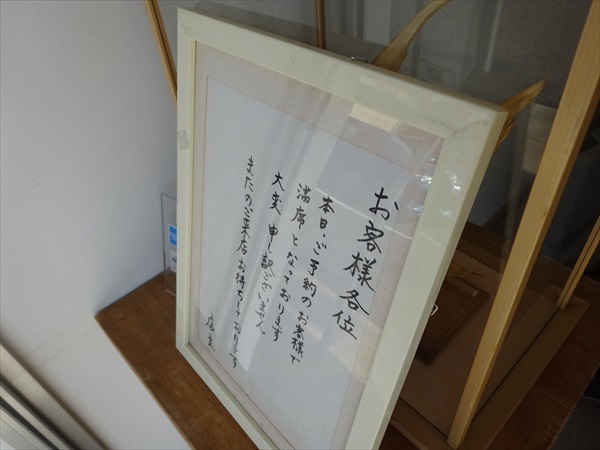 お客様各位
本日、ご予約のお客様で
満席となっております
大変申し訳ございません
またのご来店お待ちしております
店主